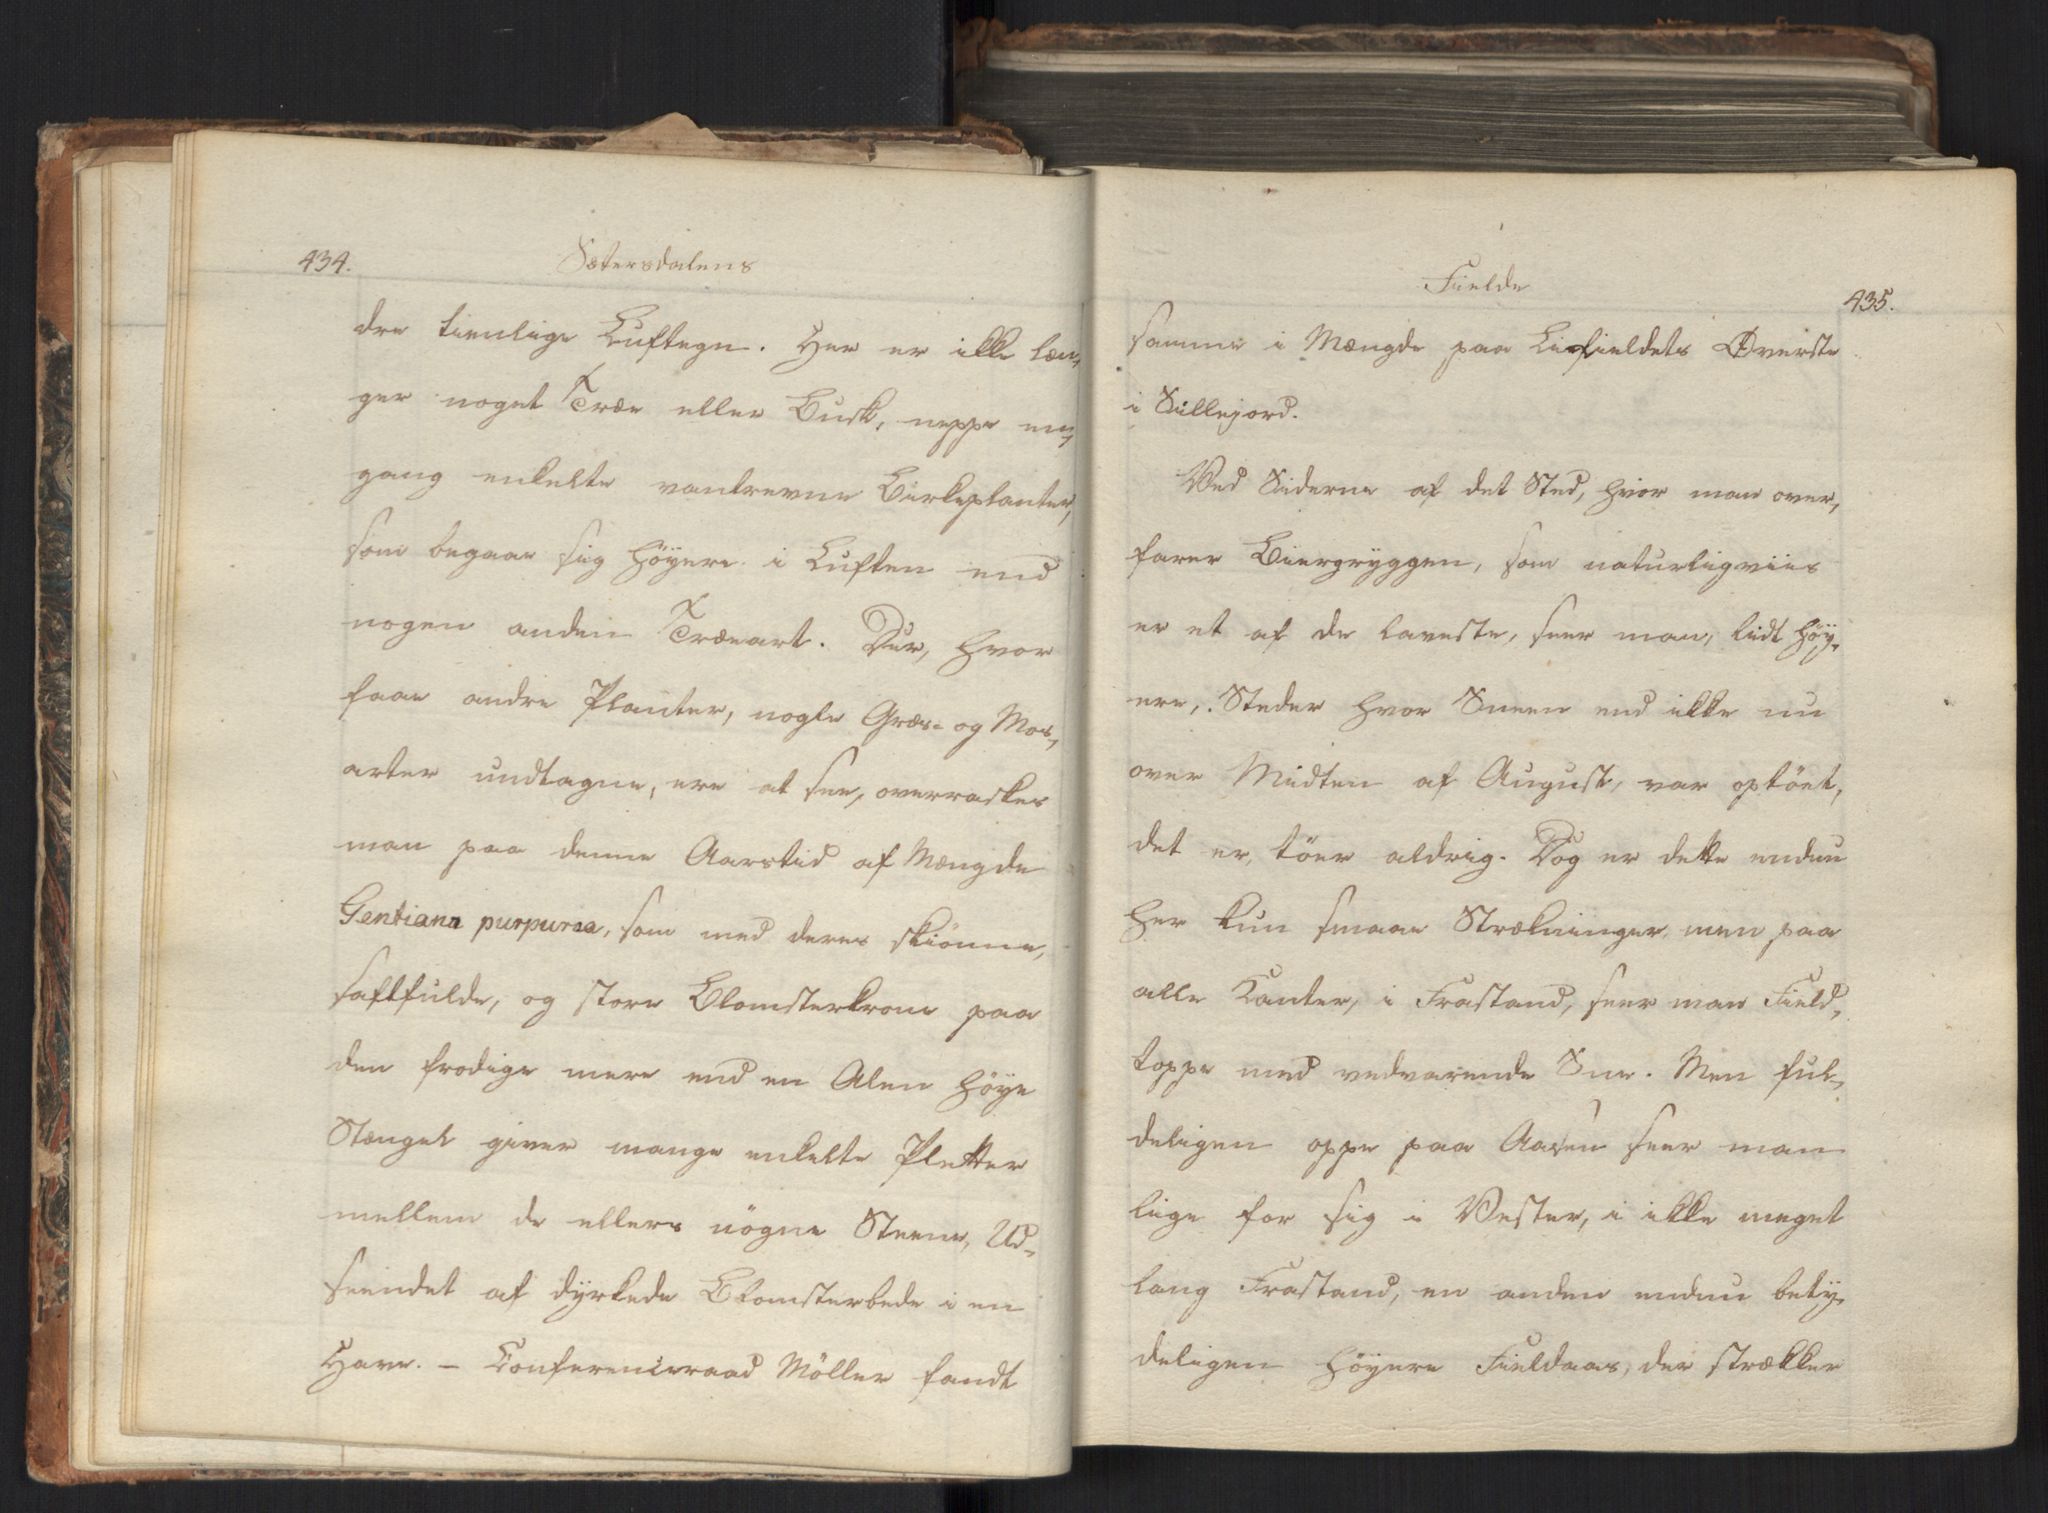 434.
Sætersdalens
dre tienlige Luftegn. Her er ikke læn,
ger noget Træe eller Busk, neppe en,
gang enkelte vantrevne Birkeplanter,
som begaae sig höyere i Luften end
nogen anden Træeart. Der, hvor
faae andre Planter, nogle Græs- og Mos,
arter undtagne, ere at see, overraskes
man paa denne Aarstid af Mængde
Gentiana purpurea, som med deres skiönne,
saftfulde, og store Blomsterkrone paa
den frodige mere end en Alen höye
Stængel giver mange enkelte Pletter
mellem de ellers nögne Steene, Ud,
seendet af dyrkede Blomsterbede i en
Have. – Conferenceraad Möller fandt
Fielde
435.
samme i Mængde paa Liefieldets Øverste
i Sillejord.
Ved Siderne af det Sted, hvor man over,
farer Biergryggen, som naturligviis
er et af de laveste, seer man, lidt höy,
ere, Steder hvor Sneen end ikke nu
over Midten af August, var optöet,
det er, töer aldrig. Dog er dette endnu
her kun smaae Strækninger, men paa
alle Kanter, i Frastand, seer man Field,
toppe med vedvarende Snee. Men ful,
deligen oppe paa Aasen seer man
lige for sig i Vester, i ikke meget
lang Frastand, en anden endnu bety,
deligen höyere Fieldaas, der strækker